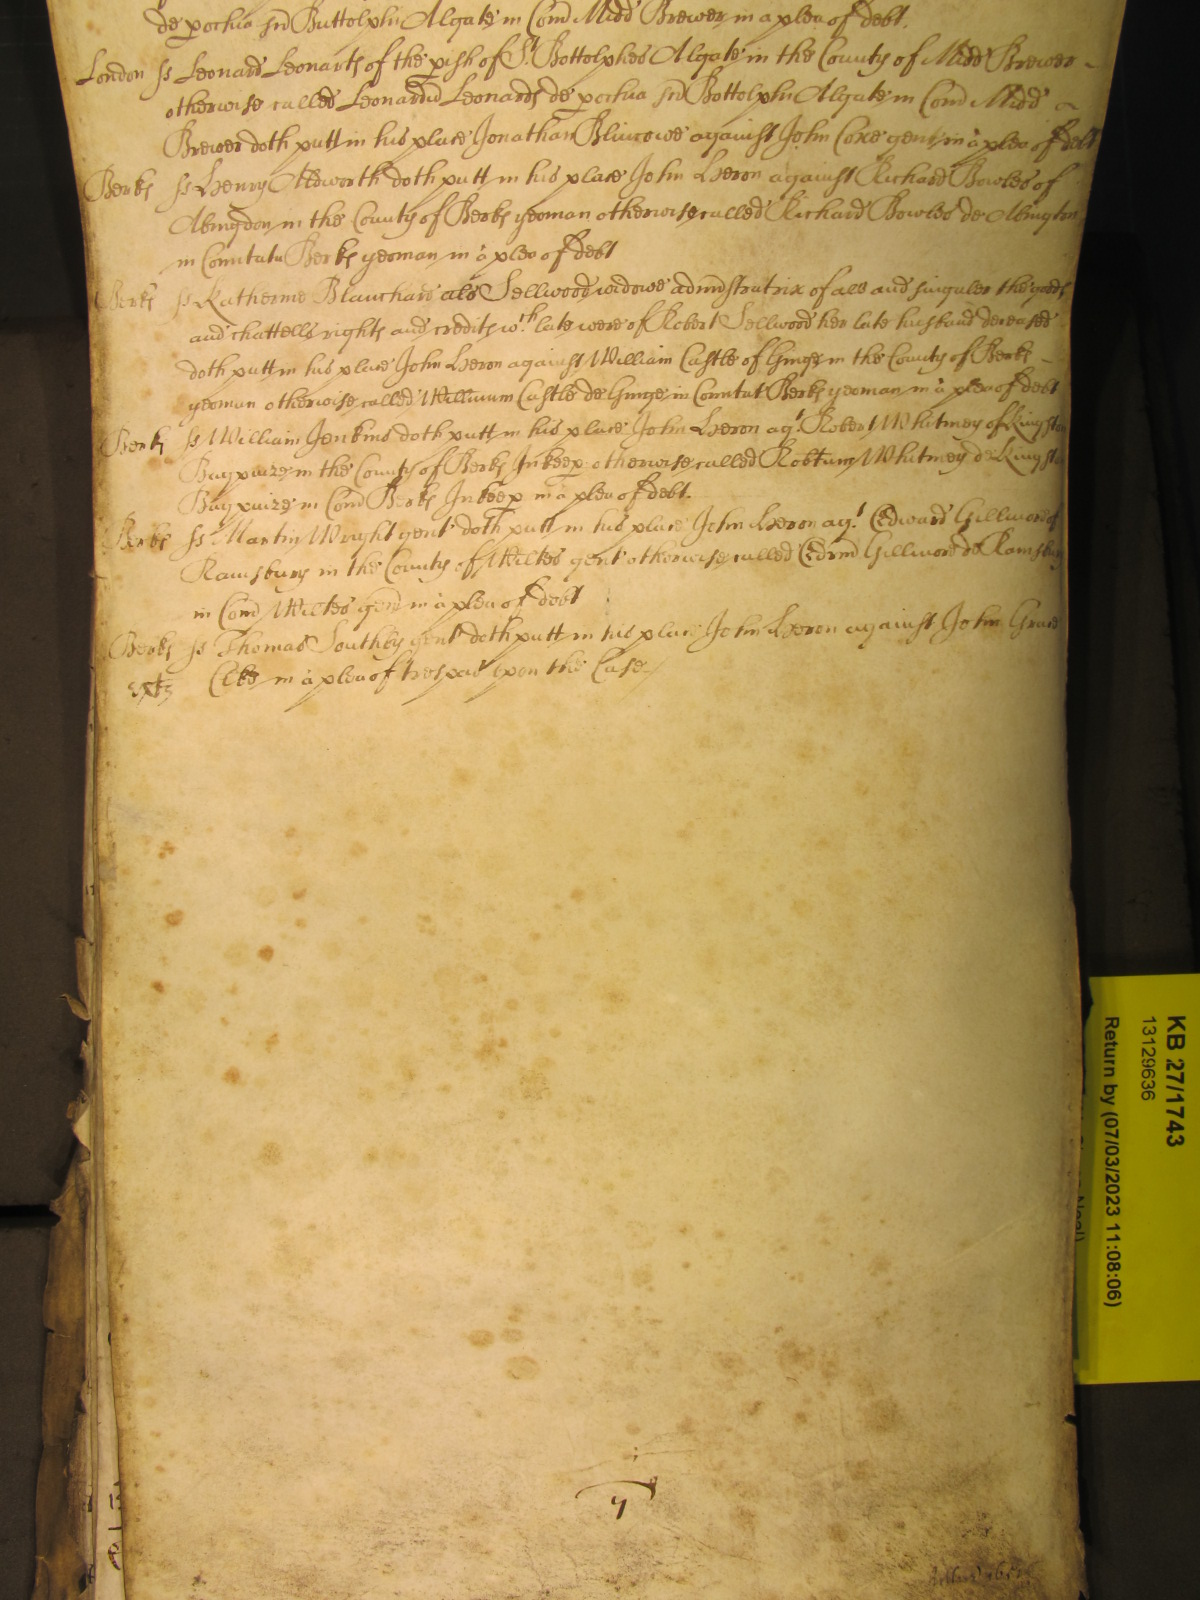 de pochia sci Buttolphi Algate in Com Midd Brewer in a plea of debt.
London ss Leonard Leonarts of the pish of St Bottolphes Algate in the County of Midd Brewer
otherwise called Leonardu Leonards de pochia sci Bottolphi Algate in Com Midd
Brewer doth putt in his place Jonathan Blincowe against John Coxe gent in a plea of debt
Berks ss Henry Aldworth doth putt in his place John Heron against Richard Bowles of
Abingdon in the County of Berks yeoman otherwise called Richard Bowles de Abington
in Comitatu Berks yeoman in a plea of debt
Berks ss Katherine Blanchard als Sellwood widowe administratrix of all and singuler the goods
and chattells rights and credits wch late were of Robert Sellwood her late husband deceased
doth putt in his place John Heron against William Castle of Ginge in the County of Berks
yeoman otherwise called William Castle de Ginge in Comitat Berks yeoman in a plea of debt
Berks ss William Jenkins doth putt in his place John Heron agt Robert Whitney of Kingston
Bagpuize in the County of Berks Inkeep otherwise called Robtum Whitney de Kingston
Bagpuize in Com Berks Inkeep in a plea of debt.
Berks ss Martin Wright gent doth putt in his place John Heron agt Edward Gillmore of
Ramsbury in the County of Wiltes gent otherwise called Edrum Gillmore de Ramsbury
in Com Wiltes gent in a plea of debt
Berks ss Thomas Southby gent doth putt in his place John Heron against John Grace
Clke in a plea of trespas upon the Case
4
KB 27/1743
13129636
Return by (07/03/2023 11:08:06)